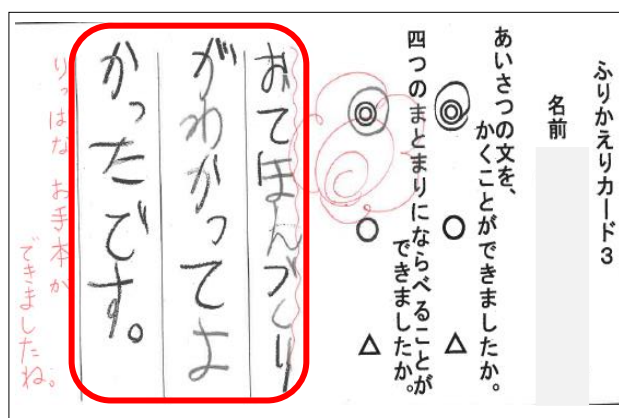 ふりかえりカード3
名前
あいさつの文を、
かくことができましたか。
◎ ○ △
四つのまとまりにならべることが
できましたか。
◎ ○ △
おてほんづくり
がわかってよ
かったです。
りっぱな お手本が
できましたね。